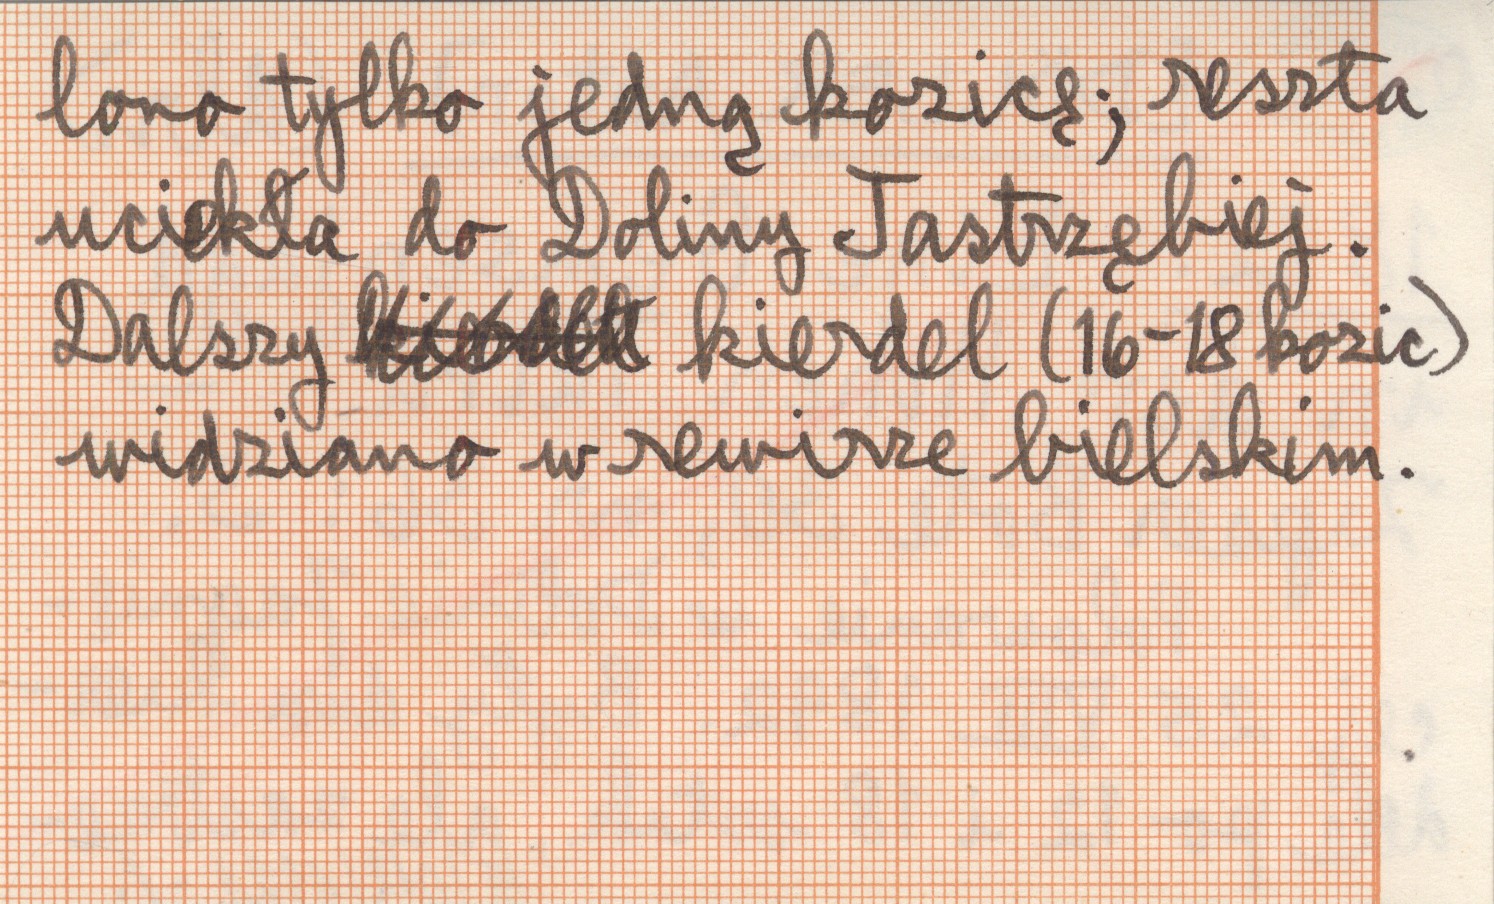 lono tylko jedną kozicę; reszta
uciekła do Doliny Jastrzębiej.
Dalszy kierdel (16-18 kozic)
widziano w rewirze bielskim.